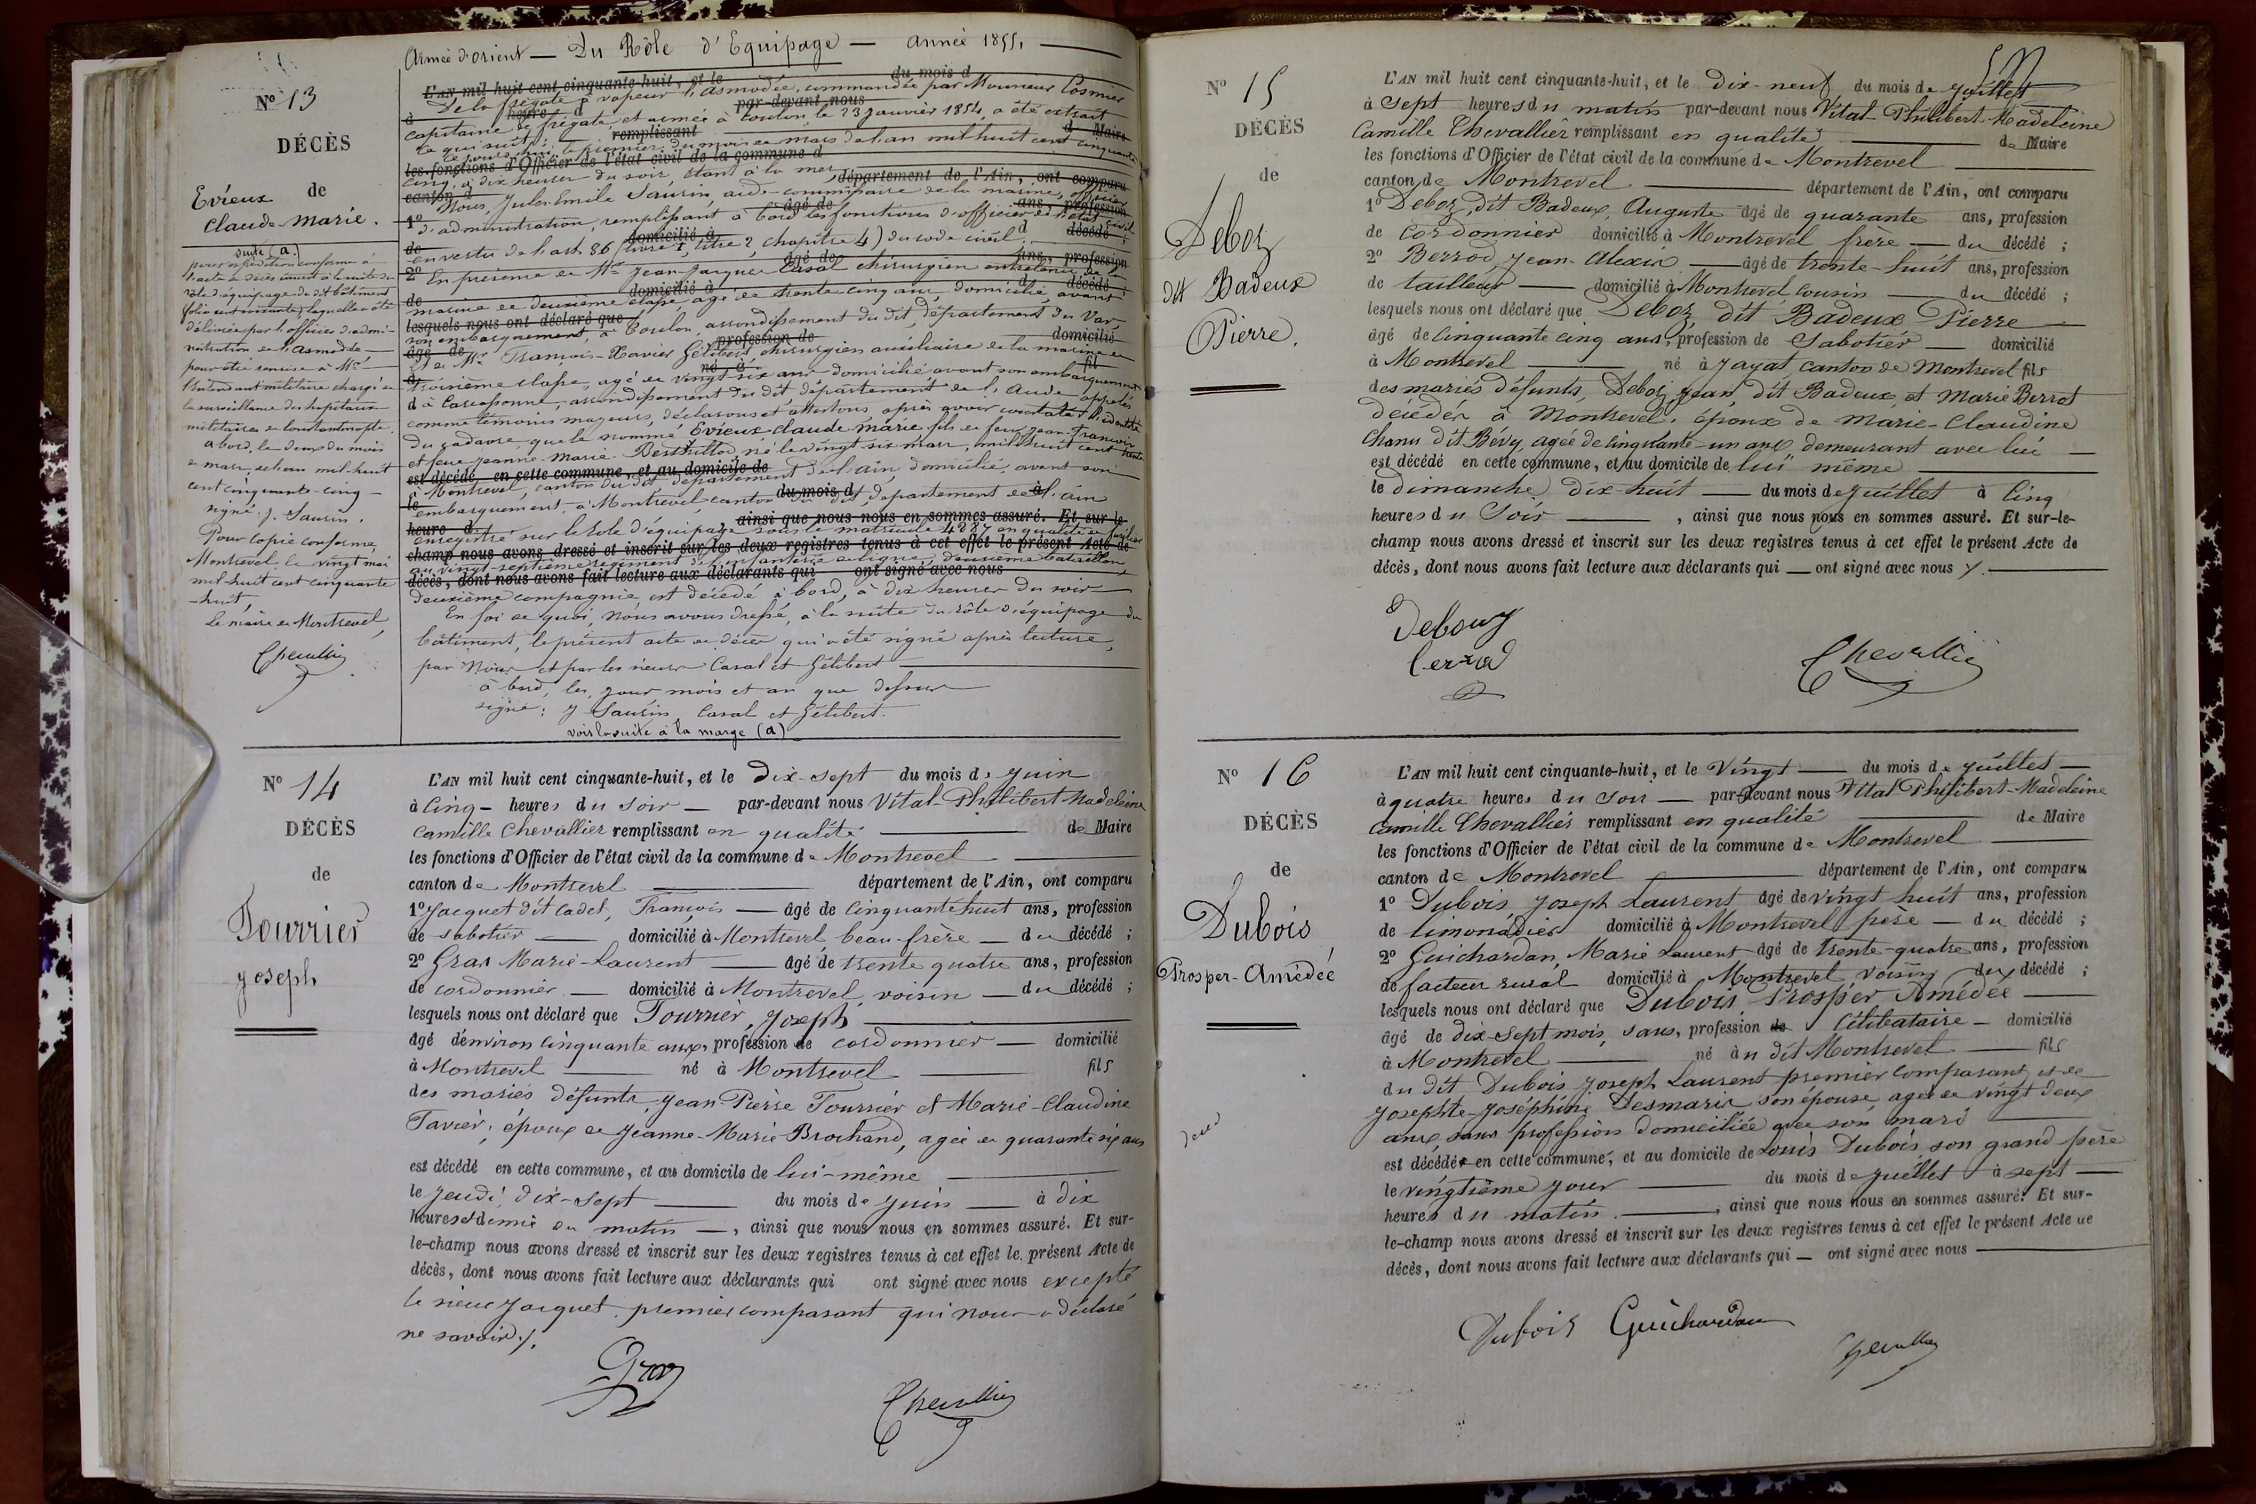 Armée d'orient — Du Rôle d'Equipage — année 1855,
N° 13
DÉCÈS
de
Evieux
Claude-Marie.
L'AN mil huit cent cinquante-huit, et le du mois d
De la frégate à vapeur l'Asmodée, commandée par Monsieur Cosmier
à heure d par-devant nous
capitaine de frégate, et armée à Toulon, le 23 Janvier 1854, a été extrait
ce qui suit:
remplissant d Maire
le premier du mois de mars de l'an mil huit cent cinquante
les fonctions d'Officier de l'état civil de la commune d
cinq, à dix heures du soir, étant à la mer
canton d département de l'Ain, ont comparu
Nous, Jules Emile Saurin, aide-commissaire de la marine, officier
1° âgé de ans, profession
d'administration, remplissant à bord les fonctions d'officier de l'état civil
de domicilié à d décédé ;
en vertu de l'art. 86 (livre 1, titre 2, chapitre 4) du code civil
2° âgé de ans, profession
En présence de Mr Jean-Jacques Casal chirurgien entretenu de la
de domicilié à d décédé ;
marine de deuxième classe, âgé de trente cinq ans, domicilié, avant
lesquels nous ont déclaré que
son embarquement, à Toulon, arrondissement du dit, département du Var
âgé de profession de domicilié
Et de Mr François-Xavier Gélibert, chirurgien auxiliaire de la marine de
à né à fil
troisième classe, âgé de vingt six ans domicilié avant son embarquement
d
à Carcassonne, arrondissement du dit, département de l'Aude, appelés
comme témoins majeurs, déclarons et attestons, après avoir constaté l'identité
du cadavre que le nommé Evieux, Claude Marie, fils de feu Jean-François
et feue Jeanne-Marie Berthillod, né le vingt six mars, mil huit cent trente
est décédé en cette commune, et au domicile de
à Montrevel, canton du dit, département de l'ain, domicilié, avant son
le du mois d à
embarquement, à Montrevel, canton du dit, département de l'ain
heure d ainsi que nous nous en sommes assuré. Et sur-le-
enregistré sur le rôle d'équipage sous le matricule 4287 en qualité de fusilier
champ nous avons dressé et inscrit sur les deux registres tenus à cet effet le présent Acte de
au vingt-septième régiment d'infanterie de ligne, deuxième bataillon
décès, dont nous avons fait lecture aux déclarants qui ont signé avec nous
deuxième compagnie est décédé à bord, à dix heures du soir
En foi de quoi, nous avons dressé, à la suite du rôle d'équipage du
bâtiment, le présent acte de décès qui a été signé après lecture,
par Nous et par les sieurs Casal et Gélibert
à bord, les jour mois et an que dessus
signé: J Saurin, Casal et Gélibert.
voir la suite à la marge (a)
suite (a.)
pour expédition conforme à
l'acte de décès inscrit à la suite du
rôle d'équipage du dit bâtiment
folio cent soixante, laquelle a été
délivrée par l'officier d'admi-
nistration de l'Asmodée
pour être remise à Mr
l'Intendant militaire chargé de
la surveillance des hopitaux
militaires de Constantinople.
à bord, le deux du mois
de mars, de l'an mil huit
cent cinquante-cinq —
signé: J. Saurin.
Pour copie conforme,
Montrevel, le vingt mai
mil huit cent cinquante
-huit,
Le maire de Montrevel,
Chevallier
N° 14
DÉCÈS
de
Tourrier
Joseph
L'AN mil huit cent cinquante-huit, et le Dix-sept du mois de Juin
à Cinq — heures du soir — par-devant nous Vital-Philibert Madeleine
Camille Chevallier remplissant en qualité de Maire
les fonctions d'Officier de l'état civil de la commune de Montrevel
canton de Montrevel département de l'Ain, ont comparu
1° Jacquet dit Cadet, François — âgé de Cinquante huit ans, profession
de sabotier — domicilié à Montrevel, beau-frère — du décédé ;
2° Gras Marie-Laurent — âgé de trente quatre ans, profession
de cordonnier — domicilié à Montrevel, voisin — du décédé ;
lesquels nous ont déclaré que Tourrier, Joseph
âgé d'environ Cinquante ans, profession de cordonnier — domicilié
à Montrevel né à Montrevel fils
des mariés défunts, Jean-Pierre Tourrier et Marie-Claudine
Tavier; époux de Jeanne-Marie Brochand, agée de quarante six ans
est décédé en cette commune, et au domicile de lui-même
le Jeudi dix-sept du mois de Juin à dix
heures et demie du matin —, ainsi que nous nous en sommes assuré. Et sur-
le-champ nous avons dressé et inscrit sur les deux registres tenus à cet effet le présent Acte de
décès, dont nous avons fait lecture aux déclarants qui ont signé avec nous excepté
le sieur Jacquet premier comparant qui nous a déclaré
ne savoir./.
Gras
Chevallier
N° 15
DÉCÈS
de
Deboz
dit Badeux
Pierre.
L'AN mil huit cent cinquante-huit, et le dix-neuf du mois de Juillet
à Sept heures du matin par-devant nous Vital-Philibert-Madeleine
Camille Chevallier remplissant en qualité de Maire
les fonctions d'Officier de l'état civil de la commune de Montrevel
canton de Montrevel département de l'Ain, ont comparu
1° Deboz, dit Badeux, Auguste âgé de quarante ans, profession
de Cordonnier domicilié à Montrevel frère — du décédé ;
2° Berrod, Jean-Alexis — âgé de trente-huit ans, profession
de tailleur — domicilié à Montrevel, cousin — du décédé ;
lesquels nous ont déclaré que Deboz, dit Badeux Pierre
âgé de Cinquante cinq ans, profession de Sabotier — domicilié
à Montrevel né à Jayat canton de Montrevel fils
des mariés défunts, Deboz, Jean, dit Badeux, et Marie Berrod
décédés à Montrevel, époux de Marie-Claudine
Chanu dit Bévy, agée de cinquante-un ans, demeurant avec lui —
est décédé en cette commune, et au domicile de lui même
le Dimanche Dix-huit — du mois de Juillet à Cinq
heures du Soir , ainsi que nous nous en sommes assuré. Et sur-le-
champ nous avons dressé et inscrit sur les deux registres tenus à cet effet le présent Acte de
décès, dont nous avons fait lecture aux déclarants qui — ont signé avec nous ./.
Debouz
Berrod
Chevallier
N° 16
DÉCÈS
de
Dubois
Prosper-Amédée
L'AN mil huit cent cinquante-huit, et le Vingt — du mois de Juillet —
à quatre heures du soir — par-devant nous Vital Philibert-Madeleine
Camille Chevallier remplissant en qualité de Maire
les fonctions d'Officier de l'état civil de la commune de Montrevel
canton de Montrevel département de l'Ain, ont comparu
1° Dubois Joseph Laurent âgé de vingt huit ans, profession
de limonadier domicilié à Montrevel père — du décédé ;
2° Guichardan, Marie Laurent âgé de trente-quatre ans, profession
de facteur rural domicilié à Montrevel voisin du décédé ;
lesquels nous ont déclaré que Dubois, Prosper Amédée
âgé de dix-sept mois, sans, profession de Célibataire — domicilié
à Montrevel né au dit Montrevel fils
du dit Dubois Joseph Laurent premier comparant et de
Josephte-Joséphine Desmaris son épouse, agée de vingt deux
ans, sans profession domiciliée avec son mari
est décédé en cette commune, et au domicile de Louis Dubois son grand père
le vingtième jour du mois de Juillet à sept —
heures du matin , ainsi que nous nous en sommes assuré. Et sur-
le-champ nous avons dressé et inscrit sur les deux registres tenus à cet effet le présent Acte de
décès, dont nous avons fait lecture aux déclarants qui — ont signé avec nous
Dubois Guichardan
Chevallier